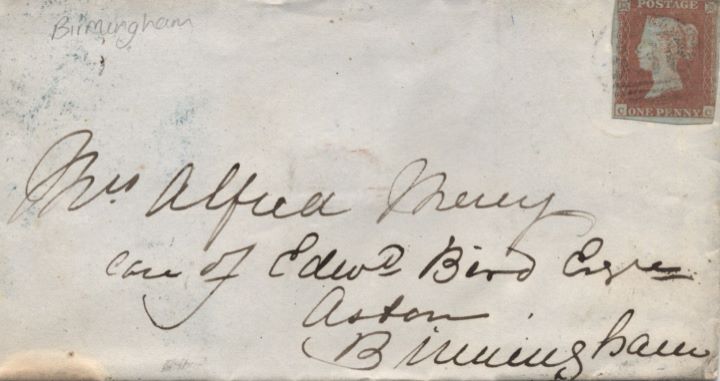 Birmingham
POSTAGE
C ONE PENNY C
Mrs Alfred Merry
care of Edwd Bird Esqre
Aston
Birmingham